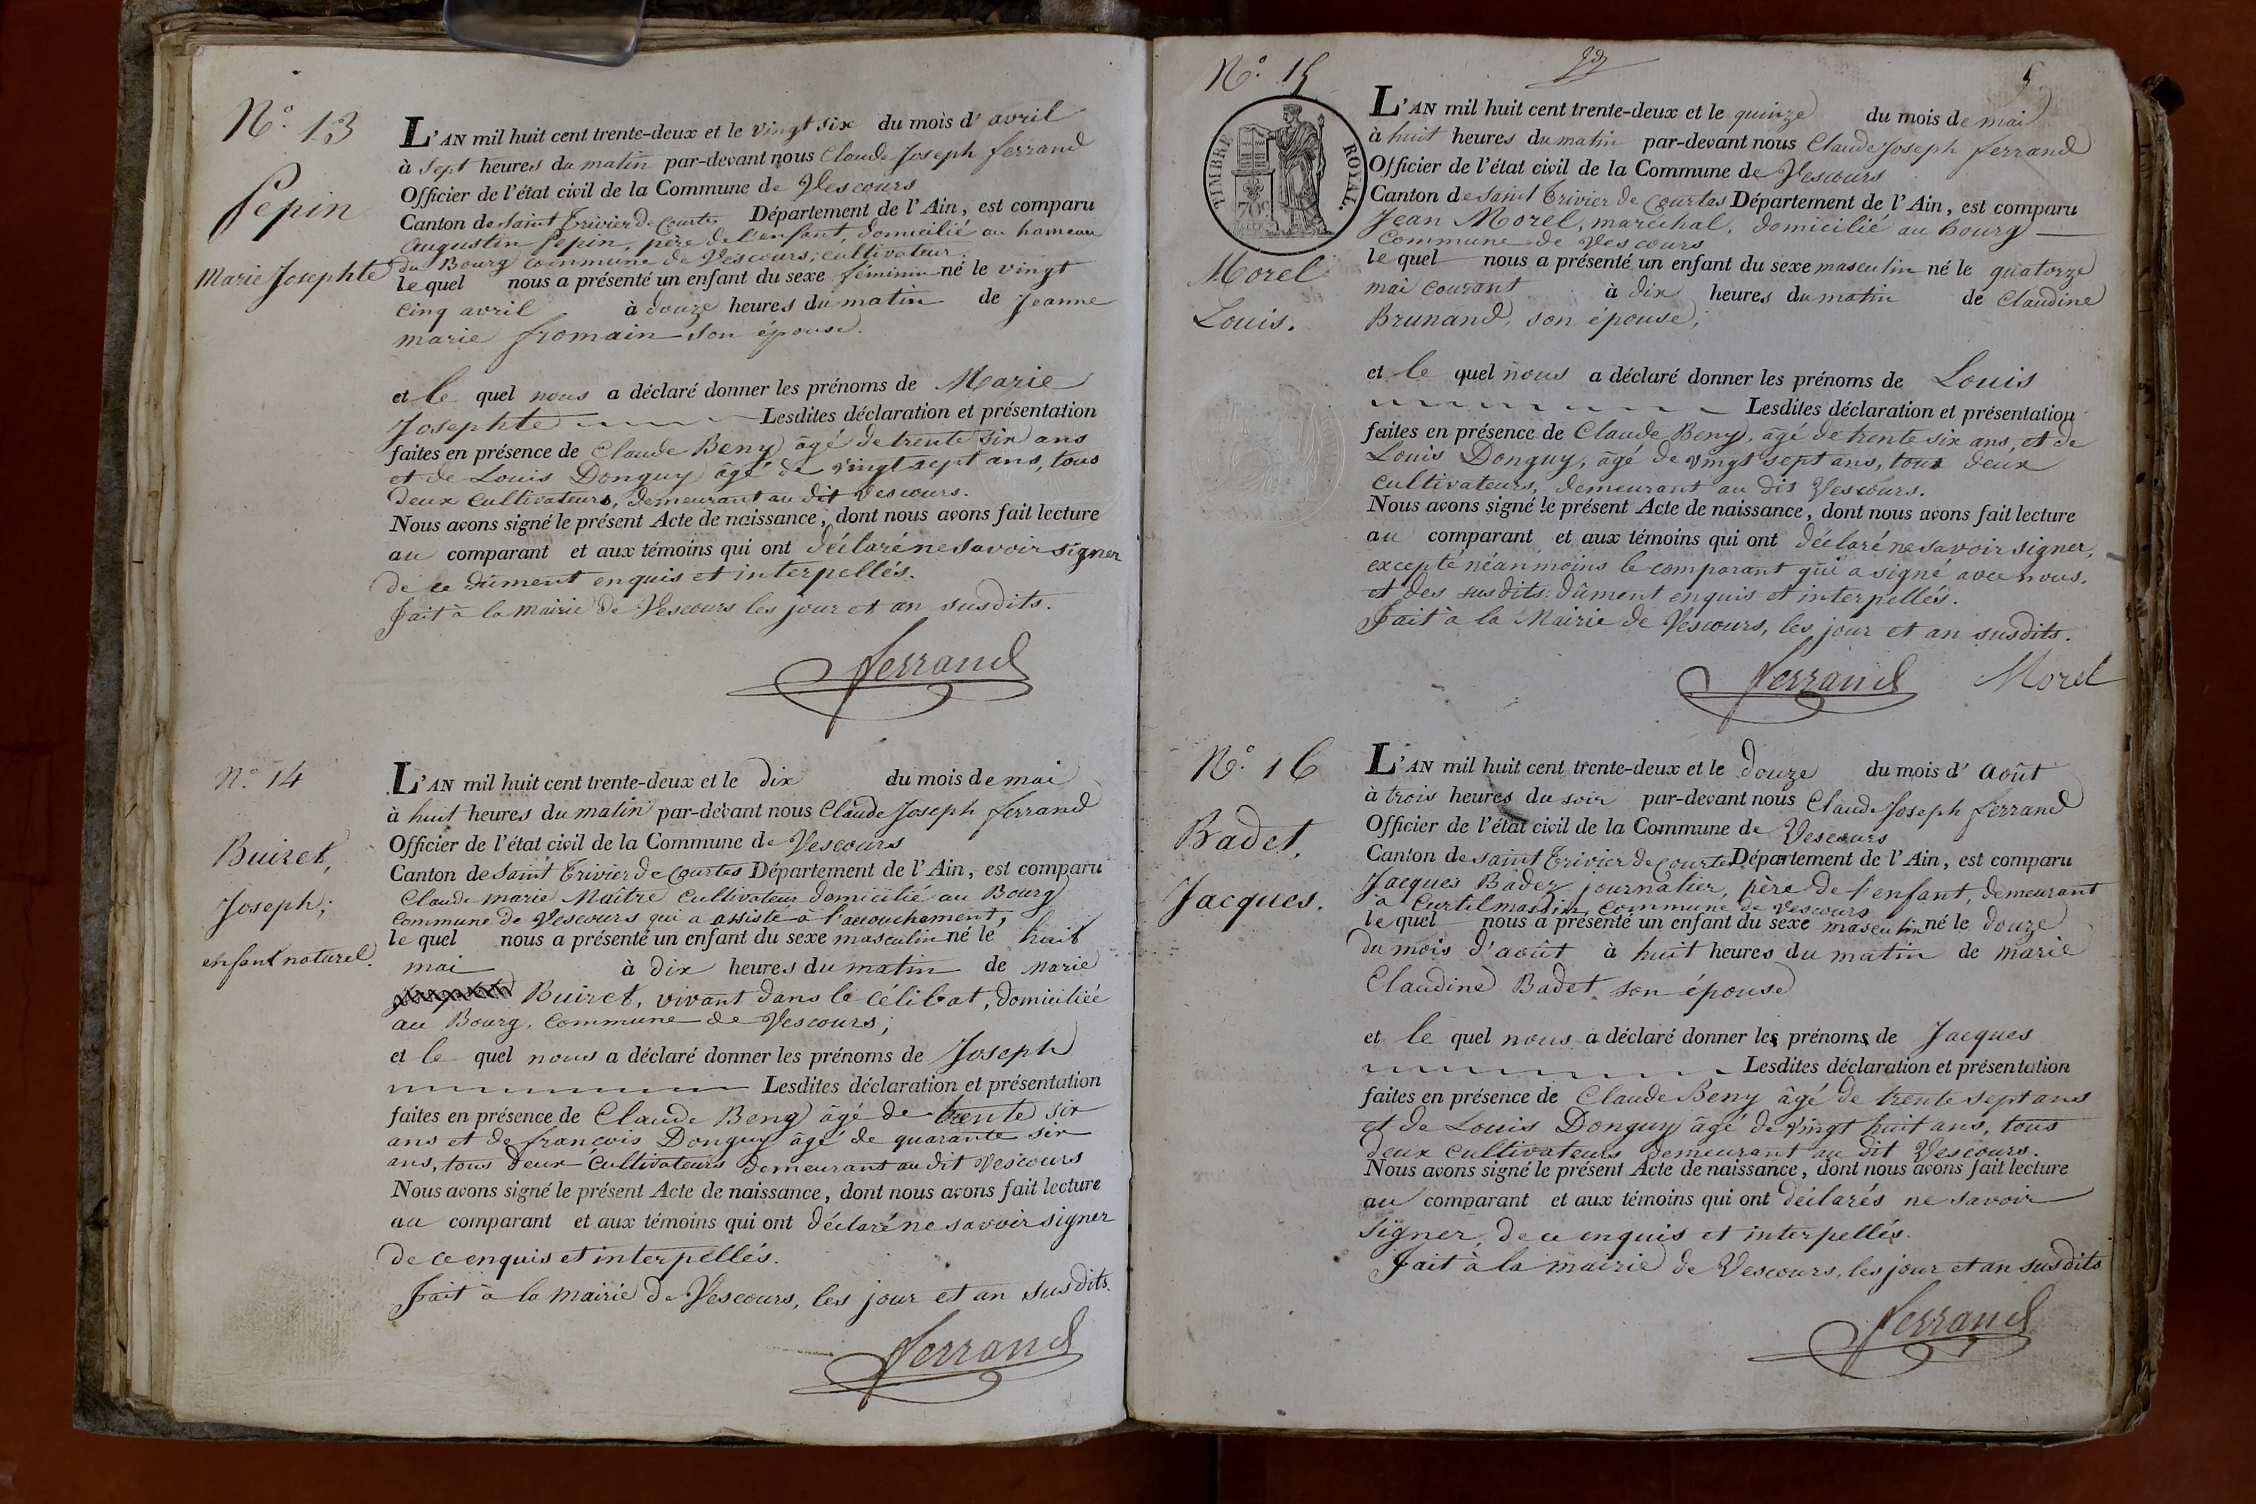 N.° 13
Pepin
Marie Josephte
L'AN mil huit cent trente-deux et le vingt six du mois d'avril
à sept heures du matin par-devant nous Claude Joseph ferrand
Officier de l'état civil de la Commune de Vescours
Canton de Saint Trivier de Courtes Département de l'Ain, est comparu
augustin Pepin, père de l'enfant, domicilié au hameau
du Bourg commune de Vescours, cultivateur
le quel nous a présenté un enfant du sexe féminin né le vingt
cinq avril à douze heures du matin de Jeanne
marie fromain son épouse.
et le quel nous a déclaré donner les prénoms de Marie
Josephte Lesdites déclaration et présentation
faites en présence de Claude Beny âgé de trente six ans
et de Louis Donguy âgé de vingt sept ans, tous
deux cultivateurs, demeurant au dit Vescours.
Nous avons signé le présent Acte de naissance, dont nous avons fait lecture
au comparant et aux témoins qui ont déclaré ne savoir signer
de ce dûment enquis et interpellés.
fait à la mairie de Vescours les jour et an susdits.
ferrand
N.° 14
Buiret,
Joseph;
enfant naturel.
L'AN mil huit cent trente-deux et le dix du mois de mai
à huit heures du matin par-devant nous Claude Joseph ferrand
Officier de l'état civil de la Commune de Vescours
Canton de Saint Trivier de Courtes Département de l'Ain, est comparu
Claude marie Maître cultivateur domicilié au Bourg
commune de Vescours qui a assisté à l'accouchement,
le quel nous a présenté un enfant du sexe masculin né le huit
mai à dix heures du matin de marie
Buiret, vivant dans le célibat, domiciliée
au Bourg, commune de Vescours;
et le quel nous a déclaré donner les prénoms de Joseph
Lesdites déclaration et présentation
faites en présence de Claude Beny âgé de trente six
ans et de françois Donguy âgé de quarante six
ans, tous deux cultivateurs demeurant au dit Vescours
Nous avons signé le présent Acte de naissance, dont nous avons fait lecture
au comparant et aux témoins qui ont déclaré ne savoir signer
de ce enquis et interpellés.
fait à la mairie de Vescours, les jour et an susdits.
ferrand
N.° 15
TIMBRE ROYAL.
70c
Morel
Louis.
L'AN mil huit cent trente-deux et le quinze du mois de mai
à huit heures du matin par-devant nous Claude Joseph ferrand
Officier de l'état civil de la Commune de Vescours
Canton de Saint Trivier de Courtes Département de l'Ain, est comparu
Jean Morel, maréchal, domicilié au Bourg
Commune de Vescours
le quel nous a présenté un enfant du sexe masculin né le quatorze
mai courant à dix heures du matin de Claudine
Brunand, son épouse;
et le quel nous a déclaré donner les prénoms de Louis
Lesdites déclaration et présentation
faites en présence de Claude Beny, âgé de trente six ans, et de
Louis Donguy, âgé de vingt sept ans, tous deux
cultivateurs, demeurant au dit Vescours.
Nous avons signé le présent Acte de naissance, dont nous avons fait lecture
au comparant et aux témoins qui ont déclaré ne savoir signer,
excepté néanmoins le comparant qui a signé avec nous,
et des susdits dûment enquis et interpellés.
fait à la Mairie de Vescours, les jour et an susdits.
ferrand Morel
N.° 16
Badet,
Jacques.
L'AN mil huit cent trente-deux et le douze du mois d'Août
à trois heures du soir par-devant nous Claude Joseph ferrand
Officier de l'état civil de la Commune de Vescours
Canton de saint Trivier de Courtes Département de l'Ain, est comparu
Jacques Badez journalier, père de l'enfant, demeurant
à Curtilmassin commune de Vescours
le quel nous a présenté un enfant du sexe masculin né le douze
du mois d'août à huit heures du matin de marie
Claudine Badet son épouse
et le quel nous a déclaré donner les prénoms de Jacques
Lesdites déclaration et présentation
faites en présence de Claude Beny âgé de trente sept ans
et de Louis Donguy âgé de vingt huit ans, tous
deux cultivateurs demeurant au dit Vescours.
Nous avons signé le présent Acte de naissance, dont nous avons fait lecture
au comparant et aux témoins qui ont déclarés ne savoir
signer, de ce enquis et interpellés.
fait à la mairie de Vescours, les jour et an susdits
ferrand